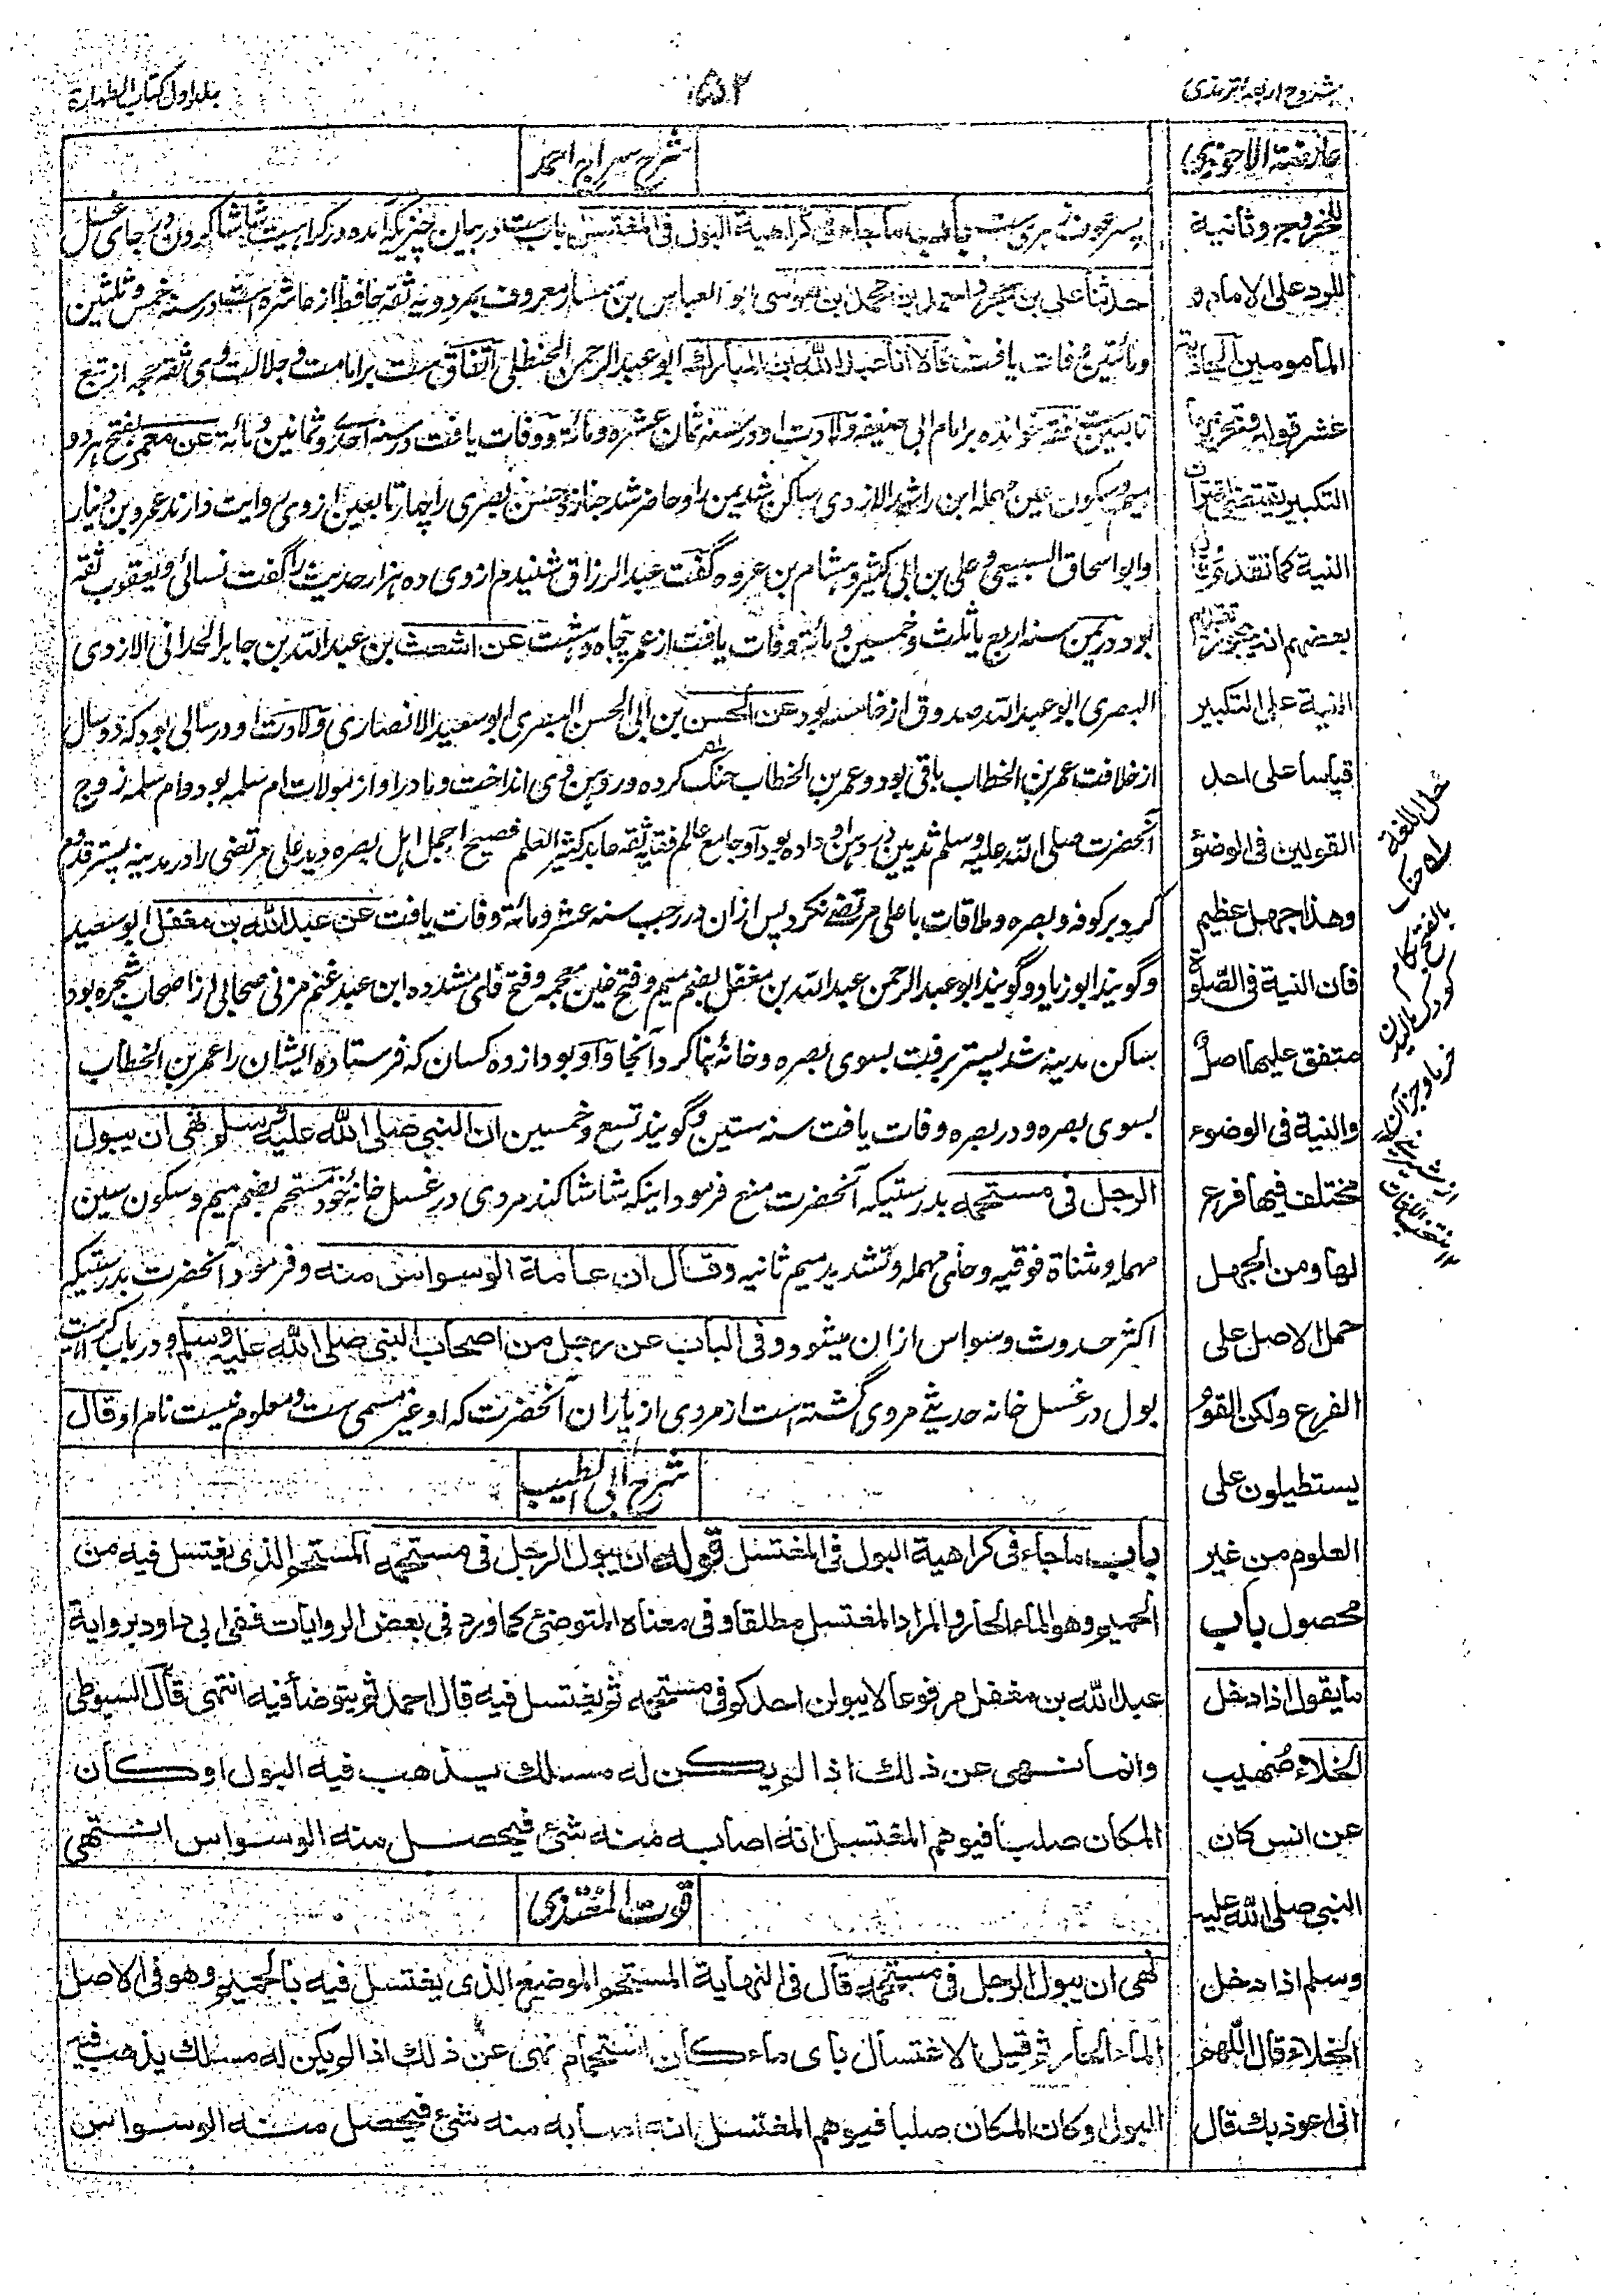 شروح اربعہ ترمذی
۵۲
جلد اول کتاب الطہارۃ
عارضة الاحوذی
للخروج وثانیة
للرد علی الامام و
المأمومین
عشر قوله
التکبیر
النیة کما تقدمت
بعضهم انه یجوز تقدیم
النیة علی التکبیر
قیاسا علی احد
القولین فی الوضوٴ
وهذا جهل عظیم
فان النیة فی الصلوٰة
متفق علیها اصل
والنیة فی الوضوء
مختلف فیها فرع
لها ومن الجهل
حمل الاصل علی
الفرع ولکن القوم
یستطیلون علی
العلوم من غیر
محصول باب
ما یقول اذا دخل
الخلاء صهیب
عن انس کان
النبی صلی الله علیه
وسلم اذا دخل
الخلاء قال اللهم
انی اعوذ بک قال
شرح سراج احمد
باب ما جاء فی کراهیة البول فی المغتسل باب ست در بیان چیزیکه آمده در کراهیت شاشا کردن در جای غسل
حدثنا علی بن حجر و احمد بن محمد بن موسی ابو العباس بن معروف بمردویه ثقه حافظ از عاشره است در سنه خمس و ثلثین
ومائتین وفات یافت قالا انا عبد الله بن المبارک ابو عبد الرحمن الحنظلی اتفاق ست بر امامت و جلالت وی ثقه حجه از تبع
تابعین ست فقه خوانده بر امام ابی حنیفه ولادت او در سنه ثمان عشره ومائة ووفات یافت در سنه احدی وثمانین ومائة عن معمر بفتح هر دو
میم وسکون عین مهمله ابن راشد الازدی ساکن شد یمن را و حاضر شد جنازه حسن بصری را چهار تابعین از وی روایت دارند عمرو بن دینار
وابو اسحاق السبیعی و علی بن ابی کثیر و هشام بن عروه گفت عبد الرزاق شنیدم از وی ده هزار حدیث را گفت نسائی و یعقوب ثقه
بود در یمن سنه اربع یا ثلث وخمسین ومائة وفات یافت از عمر پنجاه و هشت عن اشعث بن عبد الله بن جابر الحدانی الازدی
البصری ابو عبد الله صدوق از خامسه بود عن الحسن بن ابی الحسن البصری ابو سعید الانصاری ولادت او در سالی بود که دو سال
از خلافت عمر بن الخطاب باقی بود و عمر بن الخطاب حنک کرده در دهن وی انداخت و مادر او از مولات ام سلمه بود و ام سلمه زوج
آنحضرت صلی الله علیه وسلم ثدیین در دهن او داده بود او جامع عالم فقیه ثقه عابد کثیر العلم فصیح اجمل اهل بصره دید علی مرتضی را در مدینه پستر قدوم
کرد بر کوفه و بصره و ملاقات با علی مرتضی نکرد پس ازان در رجب سنه عشر ومائة وفات یافت عن عبد الله بن مغفل ابو سعید
وگویند ابو زیاد وگویند ابو عبد الرحمن عبد الله بن مغفل بضم میم وفتح غین معجمه وفتح فای مشدده ابن عبد غنم مزنی صحابی از اصحاب شجره بود
ساکن مدینه شد پستر برفت بسوی بصره و خانه بنا کرد آنجا و او بود از ده کسان که فرستاده ایشان را عمر بن الخطاب
بسوی بصره و در بصره وفات یافت سنه ستین وگویند تسع وخمسین ان النبی صلی الله علیه وسلم نهی ان یبول
الرجل فی مستحمه بدرستیکه آنحضرت منع فرمود اینکه شاشا کند مردی در غسل خانه خود مستحم بضم میم وسکون سین
مهمله ومثناة فوقیه وحای مهمله وتشدید میم ثانیه وقال ان عامة الوسواس منه وفرمود آنحضرت بدرستیکه
اکثر حدوث وسواس ازان میشود وفی الباب عن رجل من اصحاب النبی صلی الله علیه وسلم و در باب کراهیت
بول در غسل خانه حدیثی مروی گشته است از مردی از یاران آنحضرت که او غیر مسمی ست و معلوم نیست نام او قال
شرح ابی الطیب
باب ما جاء فی کراهیة البول فی المغتسل قوله ان یبول الرجل فی مستحمه المستحم الذی یغتسل فیه من
الحمیم وهو الماء الحار والمراد المغتسل مطلقا وفی معناه المتوضئ کما ورد فی بعض الروایات ففی ابی داود بروایة
عبد الله بن مغفل مرفوعا لا یبولن احدکم فی مستحمه ثم یغتسل فیه قال احمد ثم یتوضأ فیه انتهی قال السیوطی
وانما نهی عن ذلک اذا لم یکن له مسلک یذهب فیه البول او کان
المکان صلبا فیوهم المغتسل انه اصابه منه شئ فیحصل منه الوسواس انتهی
قوت المغتذی
نهی ان یبول الرجل فی مستحمه قال فی النهایة المستحم الموضع الذی یغتسل فیه بالحمیم وهو فی الاصل
الماء الحار ثم قیل الاغتسال بای ماء کان استحمام نهی عن ذلک اذا لم یکن له مسلک یذهب فیه
البول او کان المکان صلبا فیوهم المغتسل انه اصابه منه شئ فیحصل منه الوسواس
حل اللغة
حنک
بالفتح کام
کودک مالیدن
خرما و جز آن
منتخب اللغات